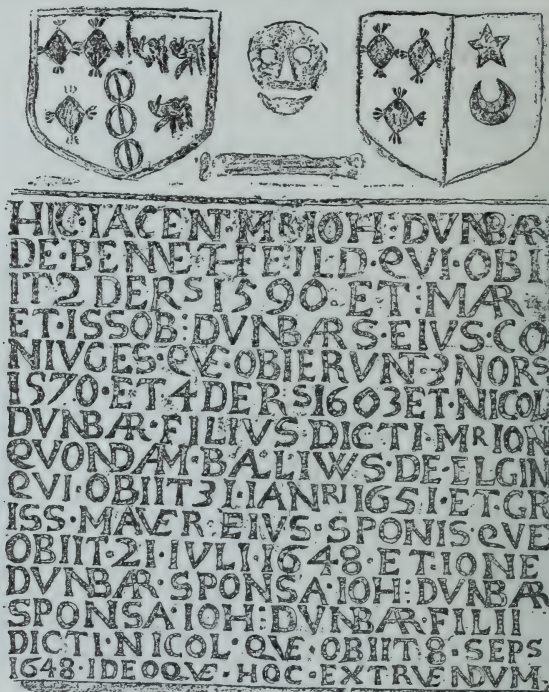 HIC·IACEN·MR IOH: DVNBAR
DE·BENNETHFEILD·QVI·OBI
IT 2 DERS 1590·ET·MAR
ET·ISSOB: DVNBARS·EIVS·CO
NIVGES·QVE·OBIERVNT·3 NORS
1570·ET 4 DERS 1603 ET·NICOL
DVNBAR·FILIVS·DICTI·MR ION
QVONDAM·BALIWS·DE·ELGIN
QVI·OBIIT 31 IANRI 1651·ET·GR
ISS·MAVER·EIVS·SPONIS QVE
OBIIT·21·IVLI·1648·ET IONE
DVNBAR·SPONSA·IOH: DVNBAR
SPONSA·IOH: DVNBAR·FILII
DICTI·NICOL·QVE·OBIIT 8·SEPS
1648·IDEOQVE·HOC·EXTRVENDVM·